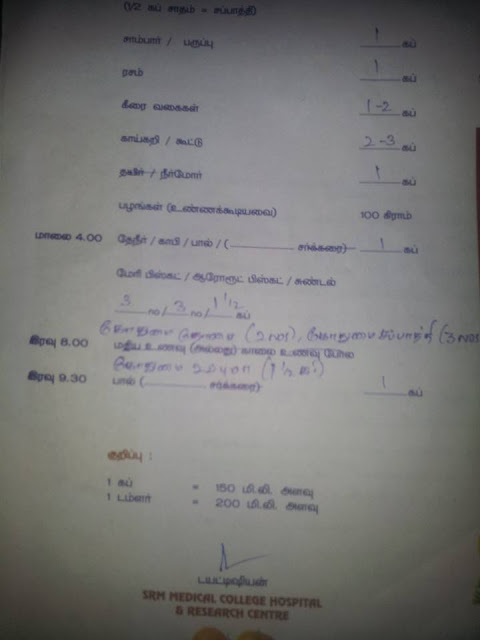 (1/2 கப் சாதம் = சப்பாத்தி)
சாம்பார் / பருப்பு 1 கப்
ரசம் 1 கப்
கீரை வகைகள் 1-2 கப்
காய்கறி / கூட்டு 2-3 கப்
தயிர் / நீர்மோர் 1 கப்
பழங்கள் (உண்ணக்கூடியவை) 100 கிராம்
மாலை 4.00 தேநீர் / காபி / பால் / (__________ சர்க்கரை) 1 கப்
மேரி பிஸ்கட் / ஆரோரூட் பிஸ்கட் / சுண்டல்
3 no / 3 no / 1 1/2 கப்
கோதுமை தோசை (2 no), கோதுமை சப்பாத்தி (3 no)
இரவு 8.00 மதிய உணவு (அல்லது) காலை உணவு போல
கோதுமை உப்புமா (1 1/2 கப்)
இரவு 9.30 பால் (__________ சர்க்கரை) 1 கப்
குறிப்பு :
1 கப் = 150 மி.லி. அளவு
1 டம்ளர் = 200 மி.லி. அளவு
டயட்டிஷியன்
SRM MEDICAL COLLEGE HOSPITAL
& RESEARCH CENTRE